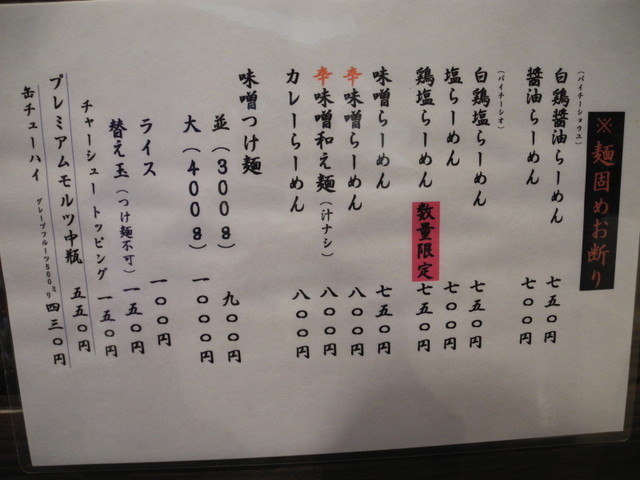 ※麺固めお断り
白鶏醤油らーめん 七五〇円
(パイチーショウユ)
醤油らーめん 七〇〇円
白鶏塩らーめん 七五〇円
(パイチーシオ)
塩らーめん 七〇〇円
鶏塩らーめん 数量限定 七五〇円
味噌らーめん 七五〇円
辛味噌らーめん 八〇〇円
辛味噌和え麺(汁ナシ) 八〇〇円
カレーらーめん 八〇〇円
味噌つけ麺
並(300g) 九〇〇円
大(400g) 一〇〇〇円
ライス 一〇〇円
替え玉(つけ麺不可) 一五〇円
チャーシュートッピング 一五〇円
プレミアムモルツ中瓶 五五〇円
缶チューハイ グレープフルーツ500ミリ 四三〇円